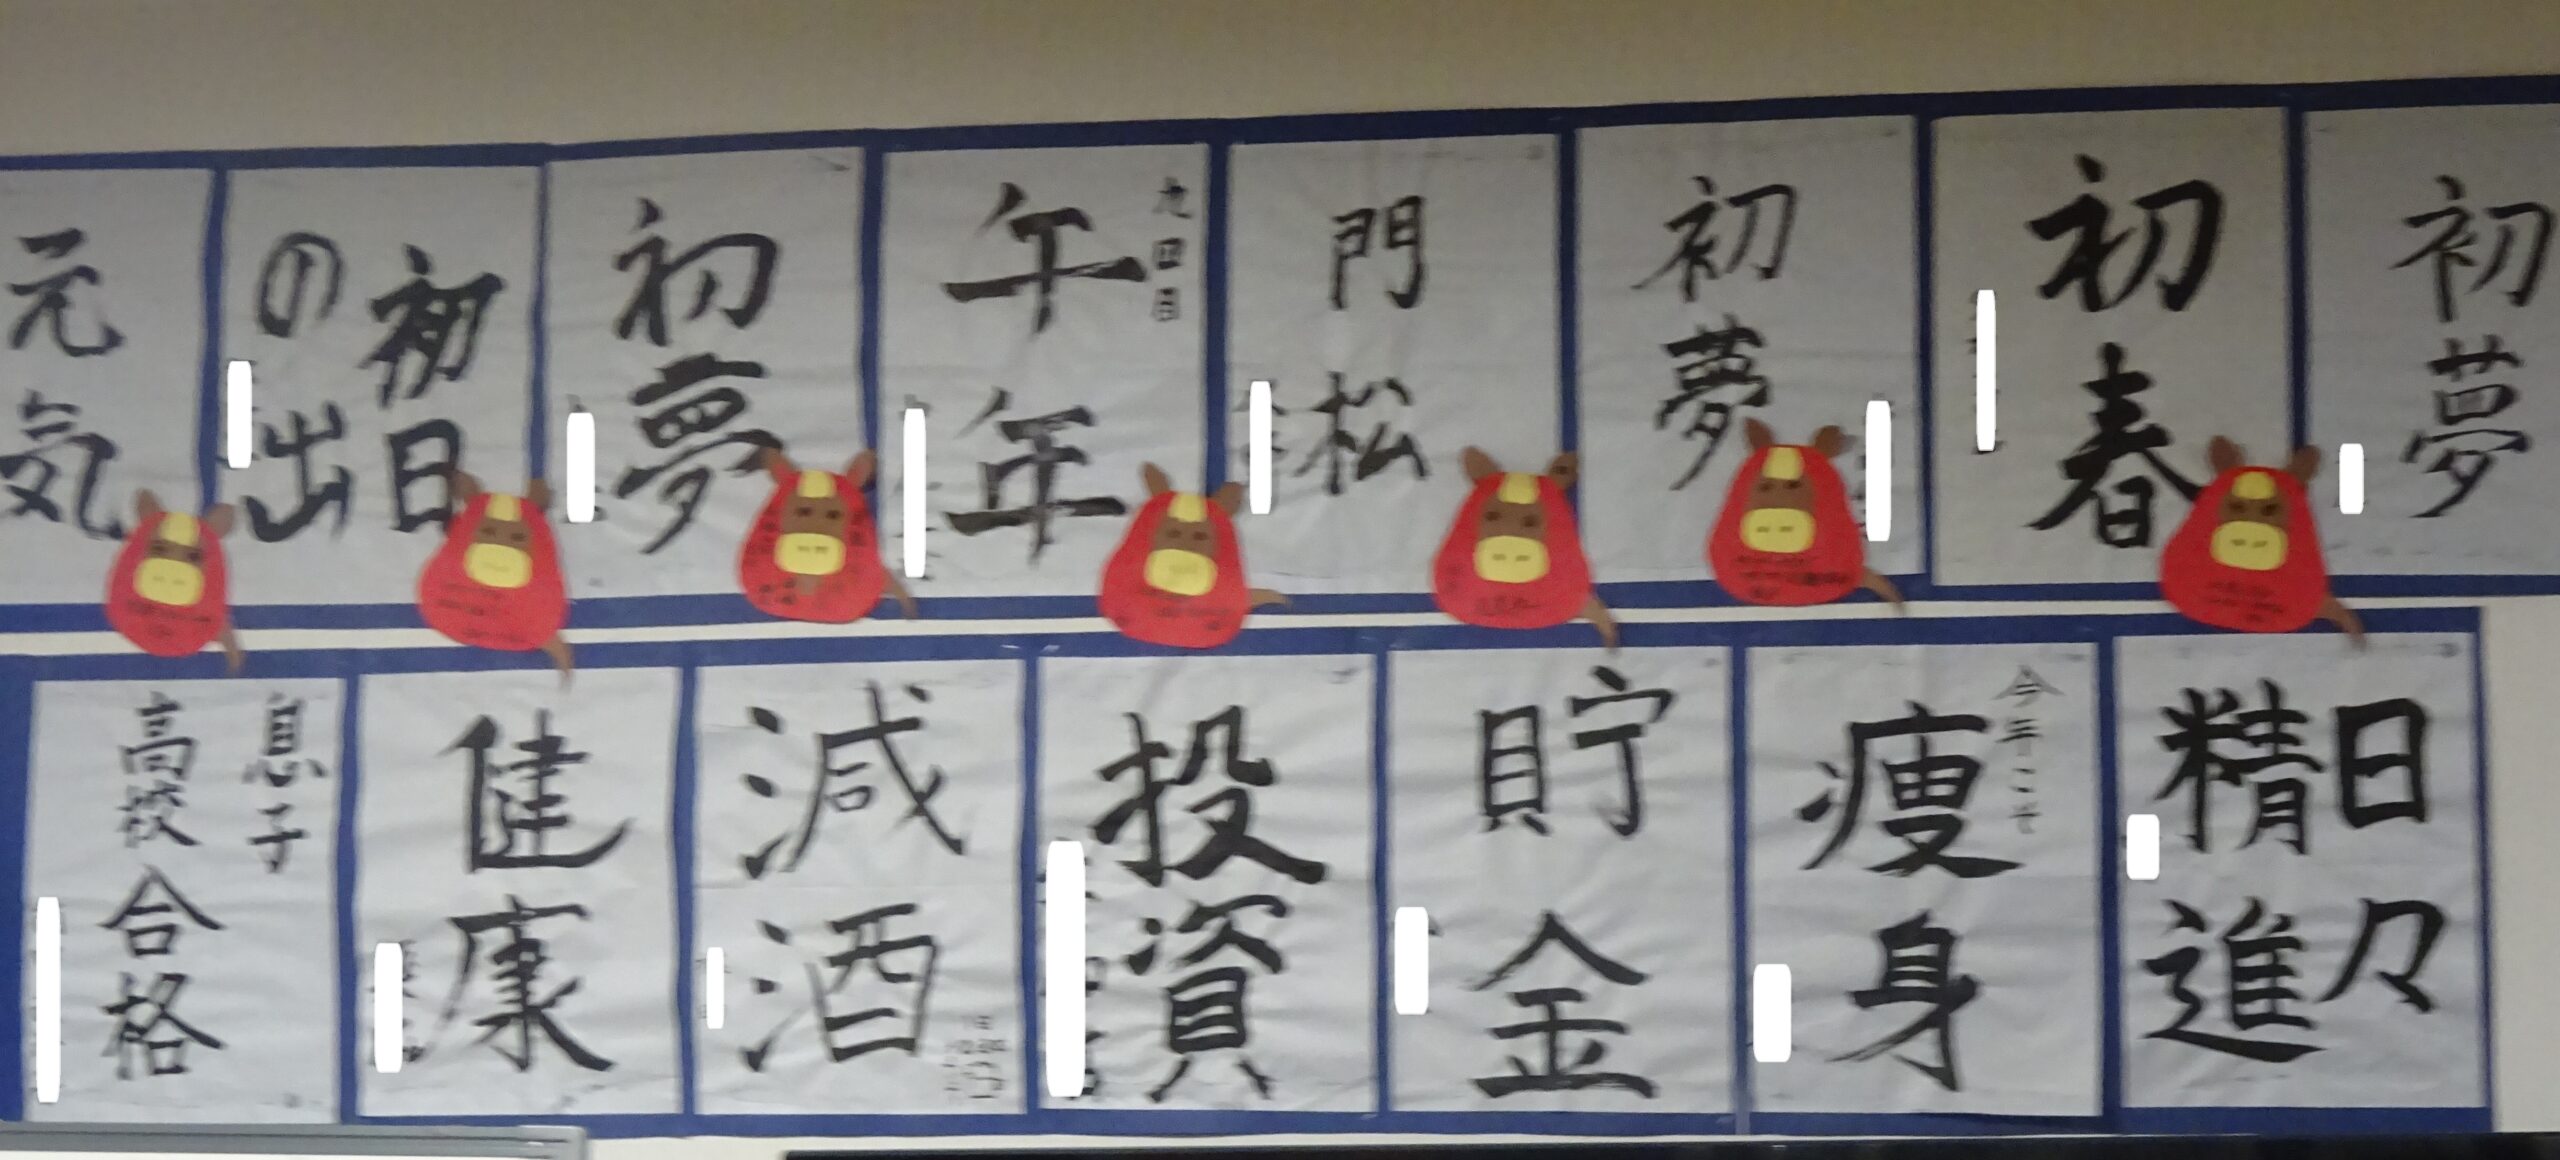 元気
初日
の出
初夢
九回目
午年
門松
初夢
初春
初夢
息子
高校合格
健康
減酒
投資
貯金
今年こそ
痩身
日々
精進